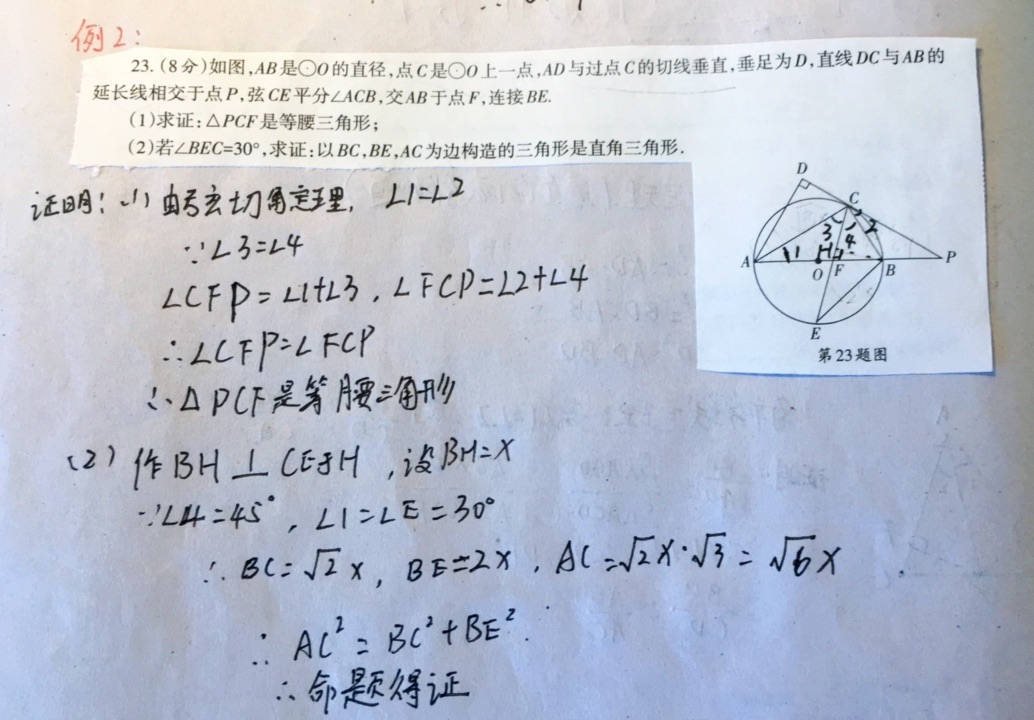 例2:
23.(8分)如图,AB是⊙O的直径,点C是⊙O上一点,AD与过点C的切线垂直,垂足为D,直线DC与AB的
延长线相交于点P,弦CE平分∠ACB,交AB于点F,连接BE.
(1)求证:△PCF是等腰三角形;
(2)若∠BEC=30°,求证:以BC,BE,AC为边构造的三角形是直角三角形.
D
C
3 4 2
A 1 O H F B P
E
第23题图
证明: (1) 由弦切角定理, ∠1=∠2
∵∠3=∠4
∠CFP=∠1+∠3, ∠FCP=∠2+∠4
∴∠CFP=∠FCP
∴△PCF是等腰三角形
(2) 作BH⊥CE于H, 设BH=x
∵∠4=45°, ∠1=∠E=30°
∴BC=√2x, BE=2x, AC=√2x·√3=√6x
∴AC²=BC²+BE².
∴命题得证